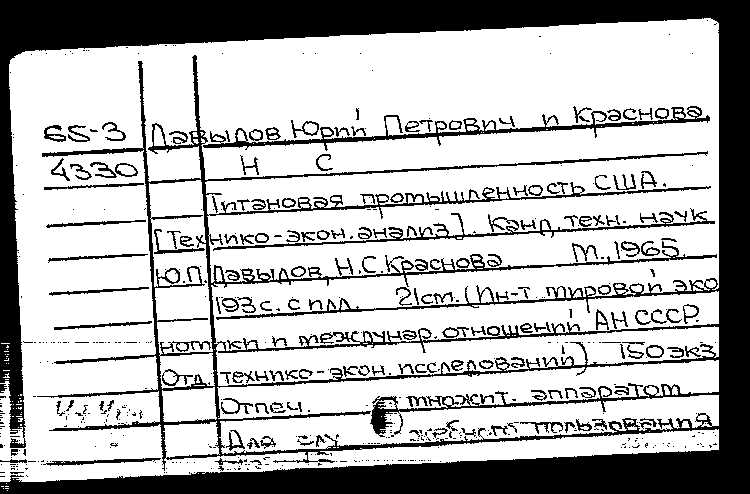 65-3 Давыдов Юрий Петрович и Краснова
4330 Н С
Титановая промышленность США.
[Технико-экон. анализ]. Канд. техн. наук
Ю.П. Давыдов, Н.С. Краснова. М., 1965.
193 с. с илл. 21 см. (Ин-т мировой эко
номики и междунар. отношений АН СССР.
Отд. технико-экон. исследований). 150 экз.
Отпеч. множит. аппаратом
Для служебного пользования